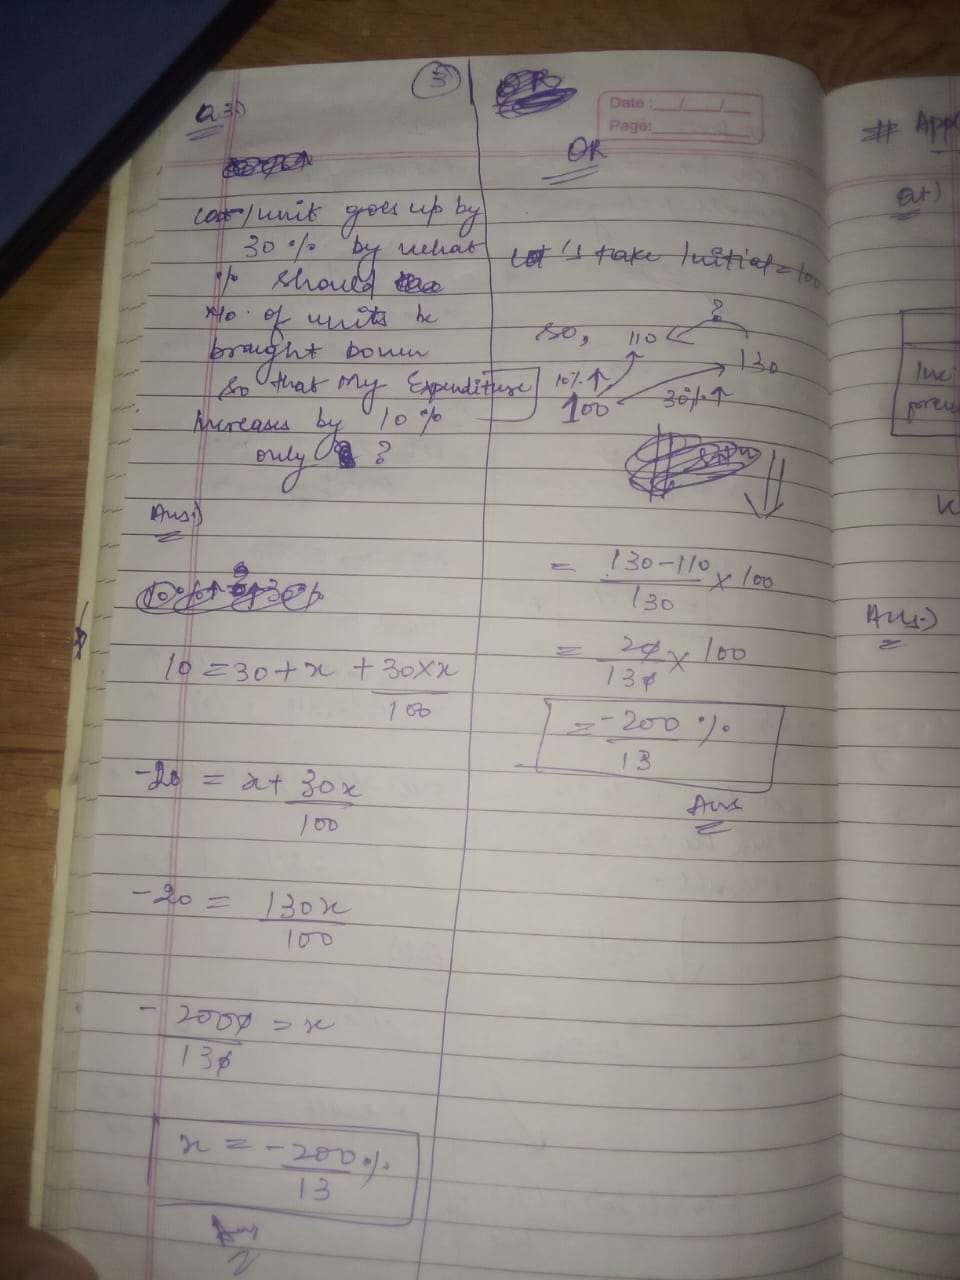 Q.3)
3
Cost/unit goes up by
30% by what
% should
No. of units be
brought Down
so that my Expenditure
Increases by 10%
only ?
Ans.)
10 = 30 + x + 30×x
100
-20 = x + 30x
100
-20 = 130x
100
- 2000 = x
130
x = -200 %
13
Ans
OR
Date : __/__/__
Page:
OR
Let's take Initial = 100
so, 110 ?
130
10% ↑
100 30% ↑
= 130-110 × 100
130
= 20 × 100
130
= -200 %
13
Ans
# App
Q1)
Inc
Ans.)